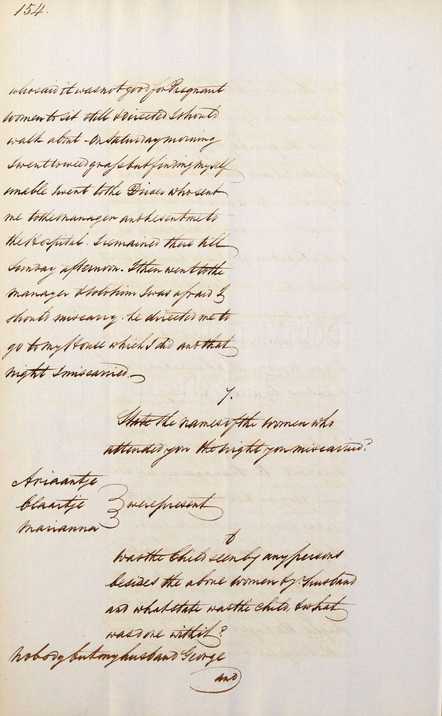 154.
who said it was not good for Pregnant
women to sit still & directed I should
walk about. On Saturday morning
I went to weed grass but finding myself
unable I went to the Driver who sent
me to the manager and he sent me to
the Hospital. I remained there till
Sunday afternoon. I then went to the
manager & told him I was afraid I
should miscarry. he directed me to
go to my House which I did and that
night I miscarried.
7.
State the names of the women who
attended you the night you miscarried?
Ariaantje
Claartje
Marianna
} were present
8
Was the Child seen by any persons
besides the above women by Husband
and what state was the child & what
was done with it?
Nobody but my husband George
and